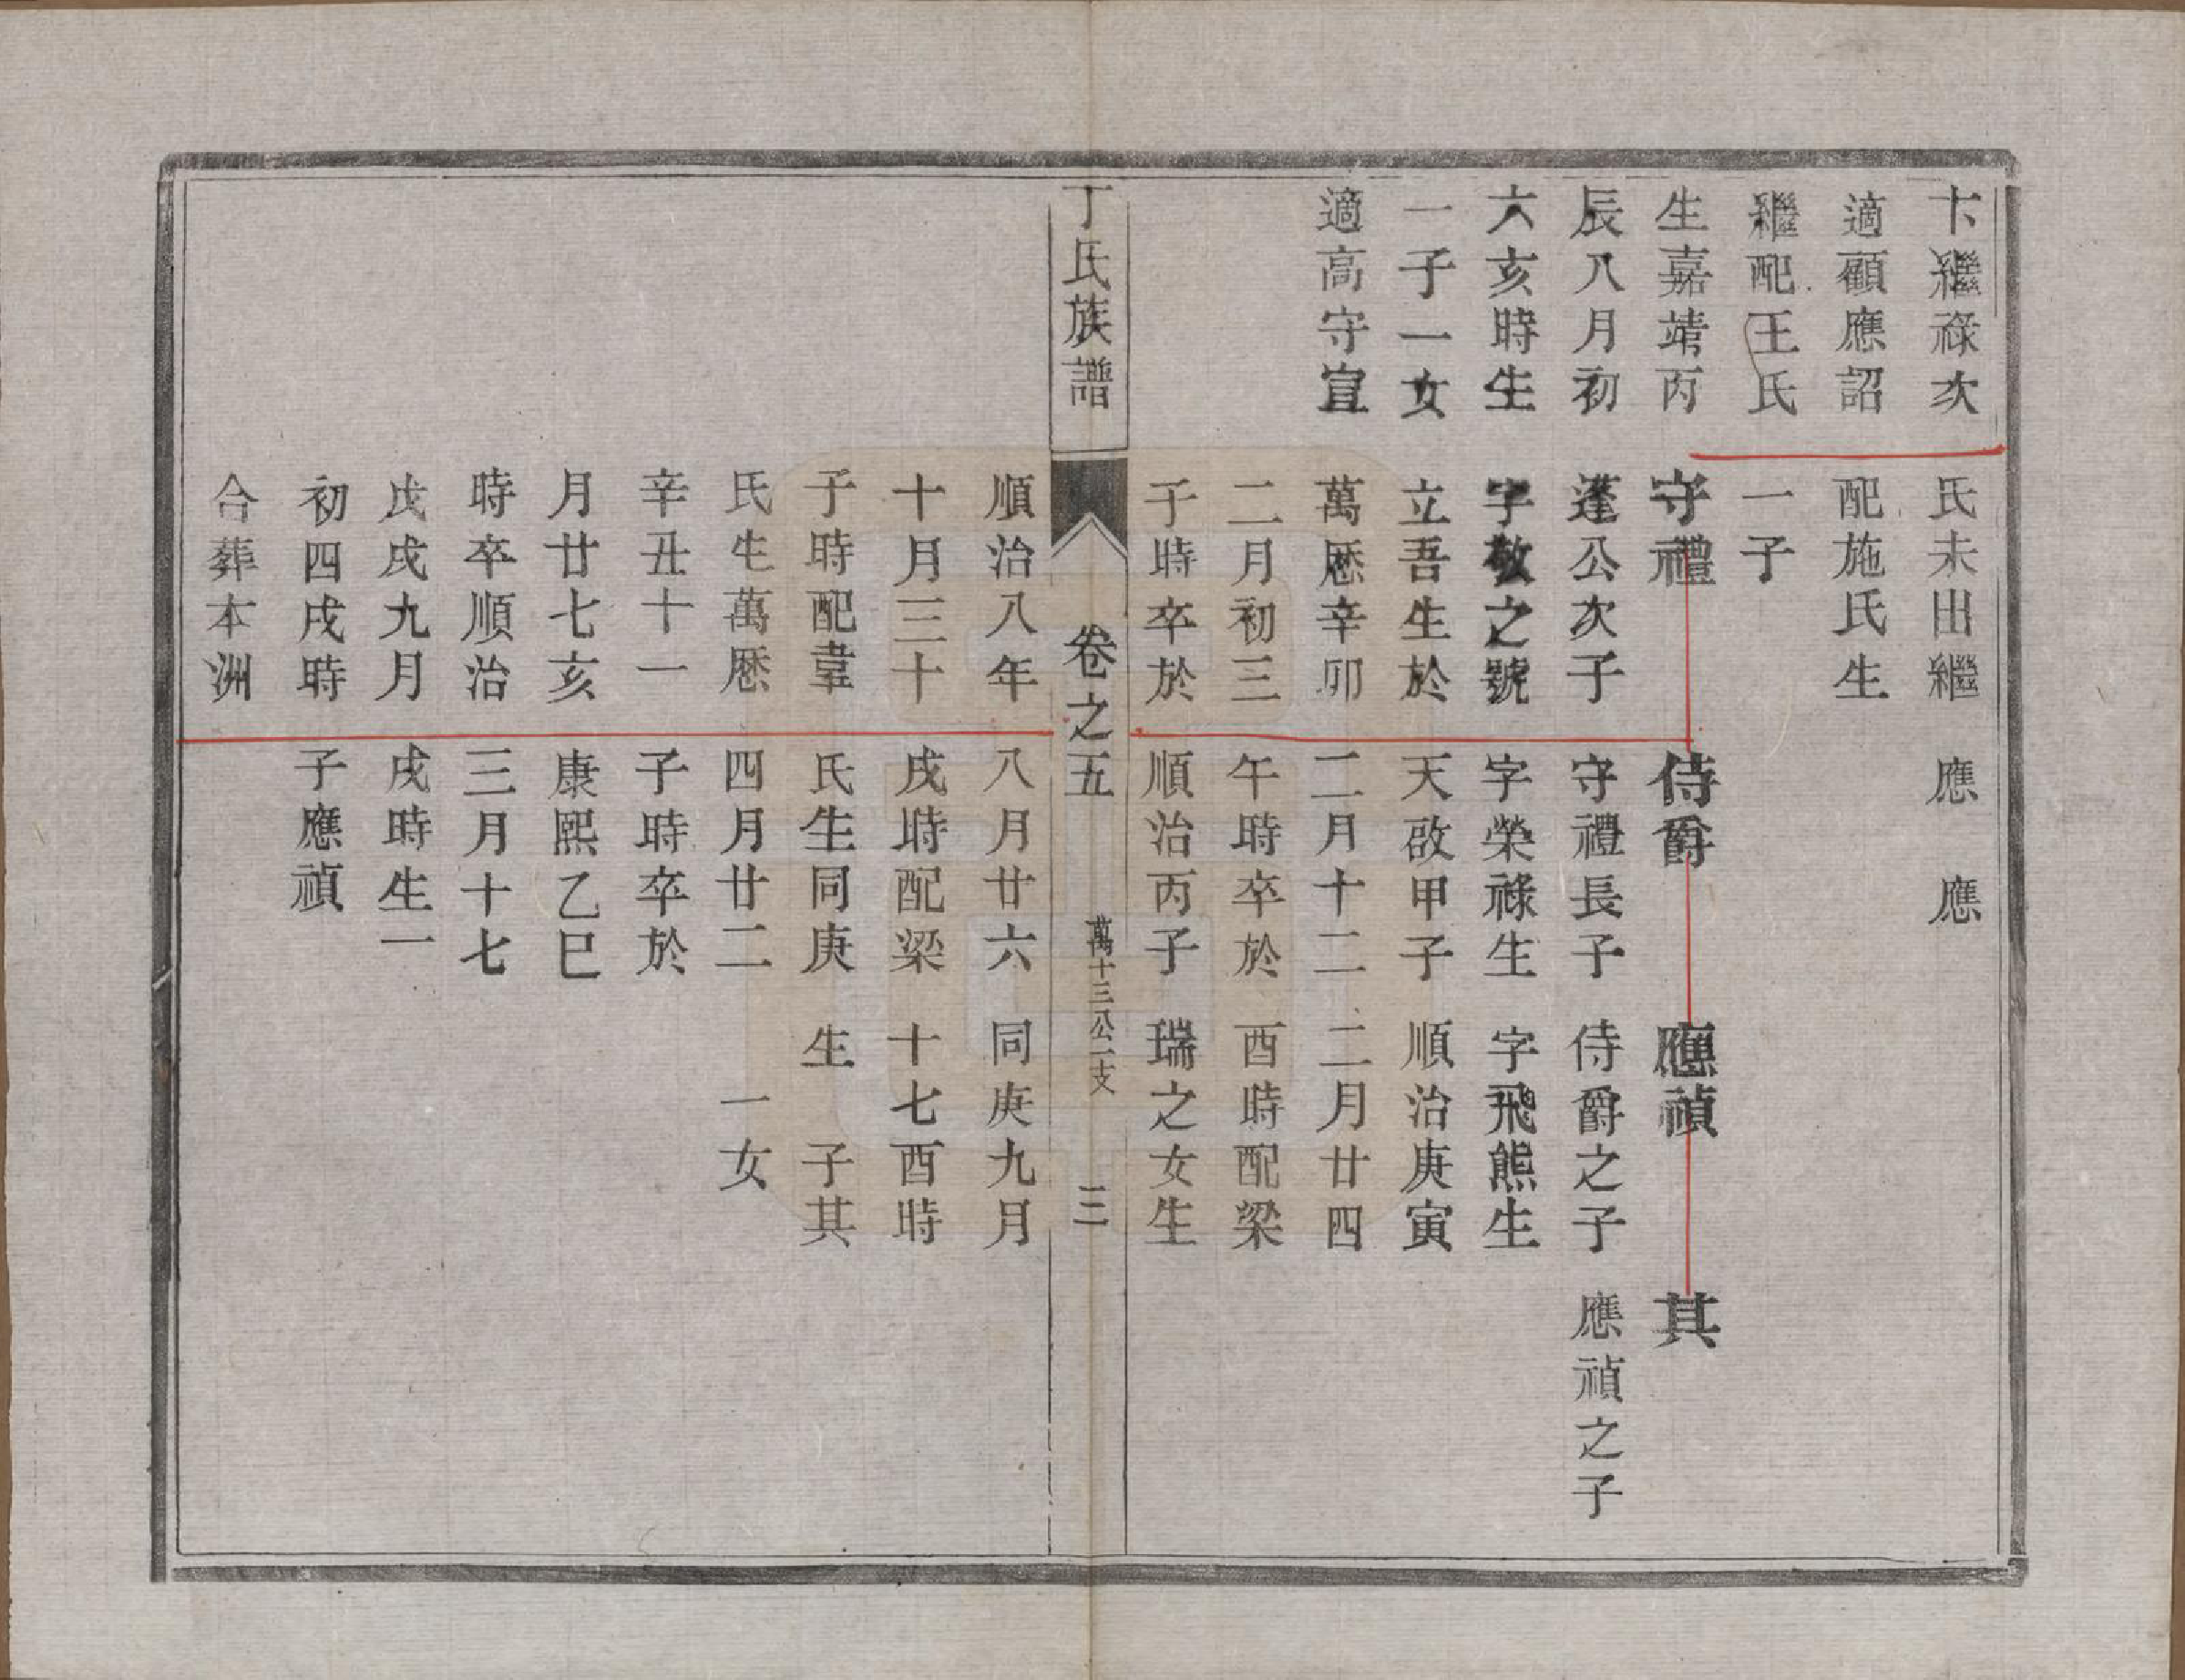 卞繼祿次
適顧應詔
繼配王氏
生嘉靖丙
辰八月初
六亥時生
一子一女
適高守宣
氏未出繼
配施氏生
一子
守禮
蓬公次子
字敬之號
立吾生於
萬厯辛卯
二月初三
子時卒於
順治八年
十月三十
子時配韋
氏生萬厯
辛丑十一
月廿七亥
時卒順治
戊戌九月
初四戌時
合葬本洲
應　應
侍爵
守禮長子
字榮祿生
天啟甲子
二月十二
午時卒於
順治丙子
八月廿六
戌時配梁
氏生同庚
四月廿二
子時卒於
康熙乙巳
三月十七
戌時生一
子應禎
應禎
侍爵之子
字飛熊生
順治庚寅
二月廿四
酉時配梁
瑞之女生
同庚九月
十七酉時
生　子其
一女
其
應禎之子
丁氏族譜
卷之五
萬十三公二支
三